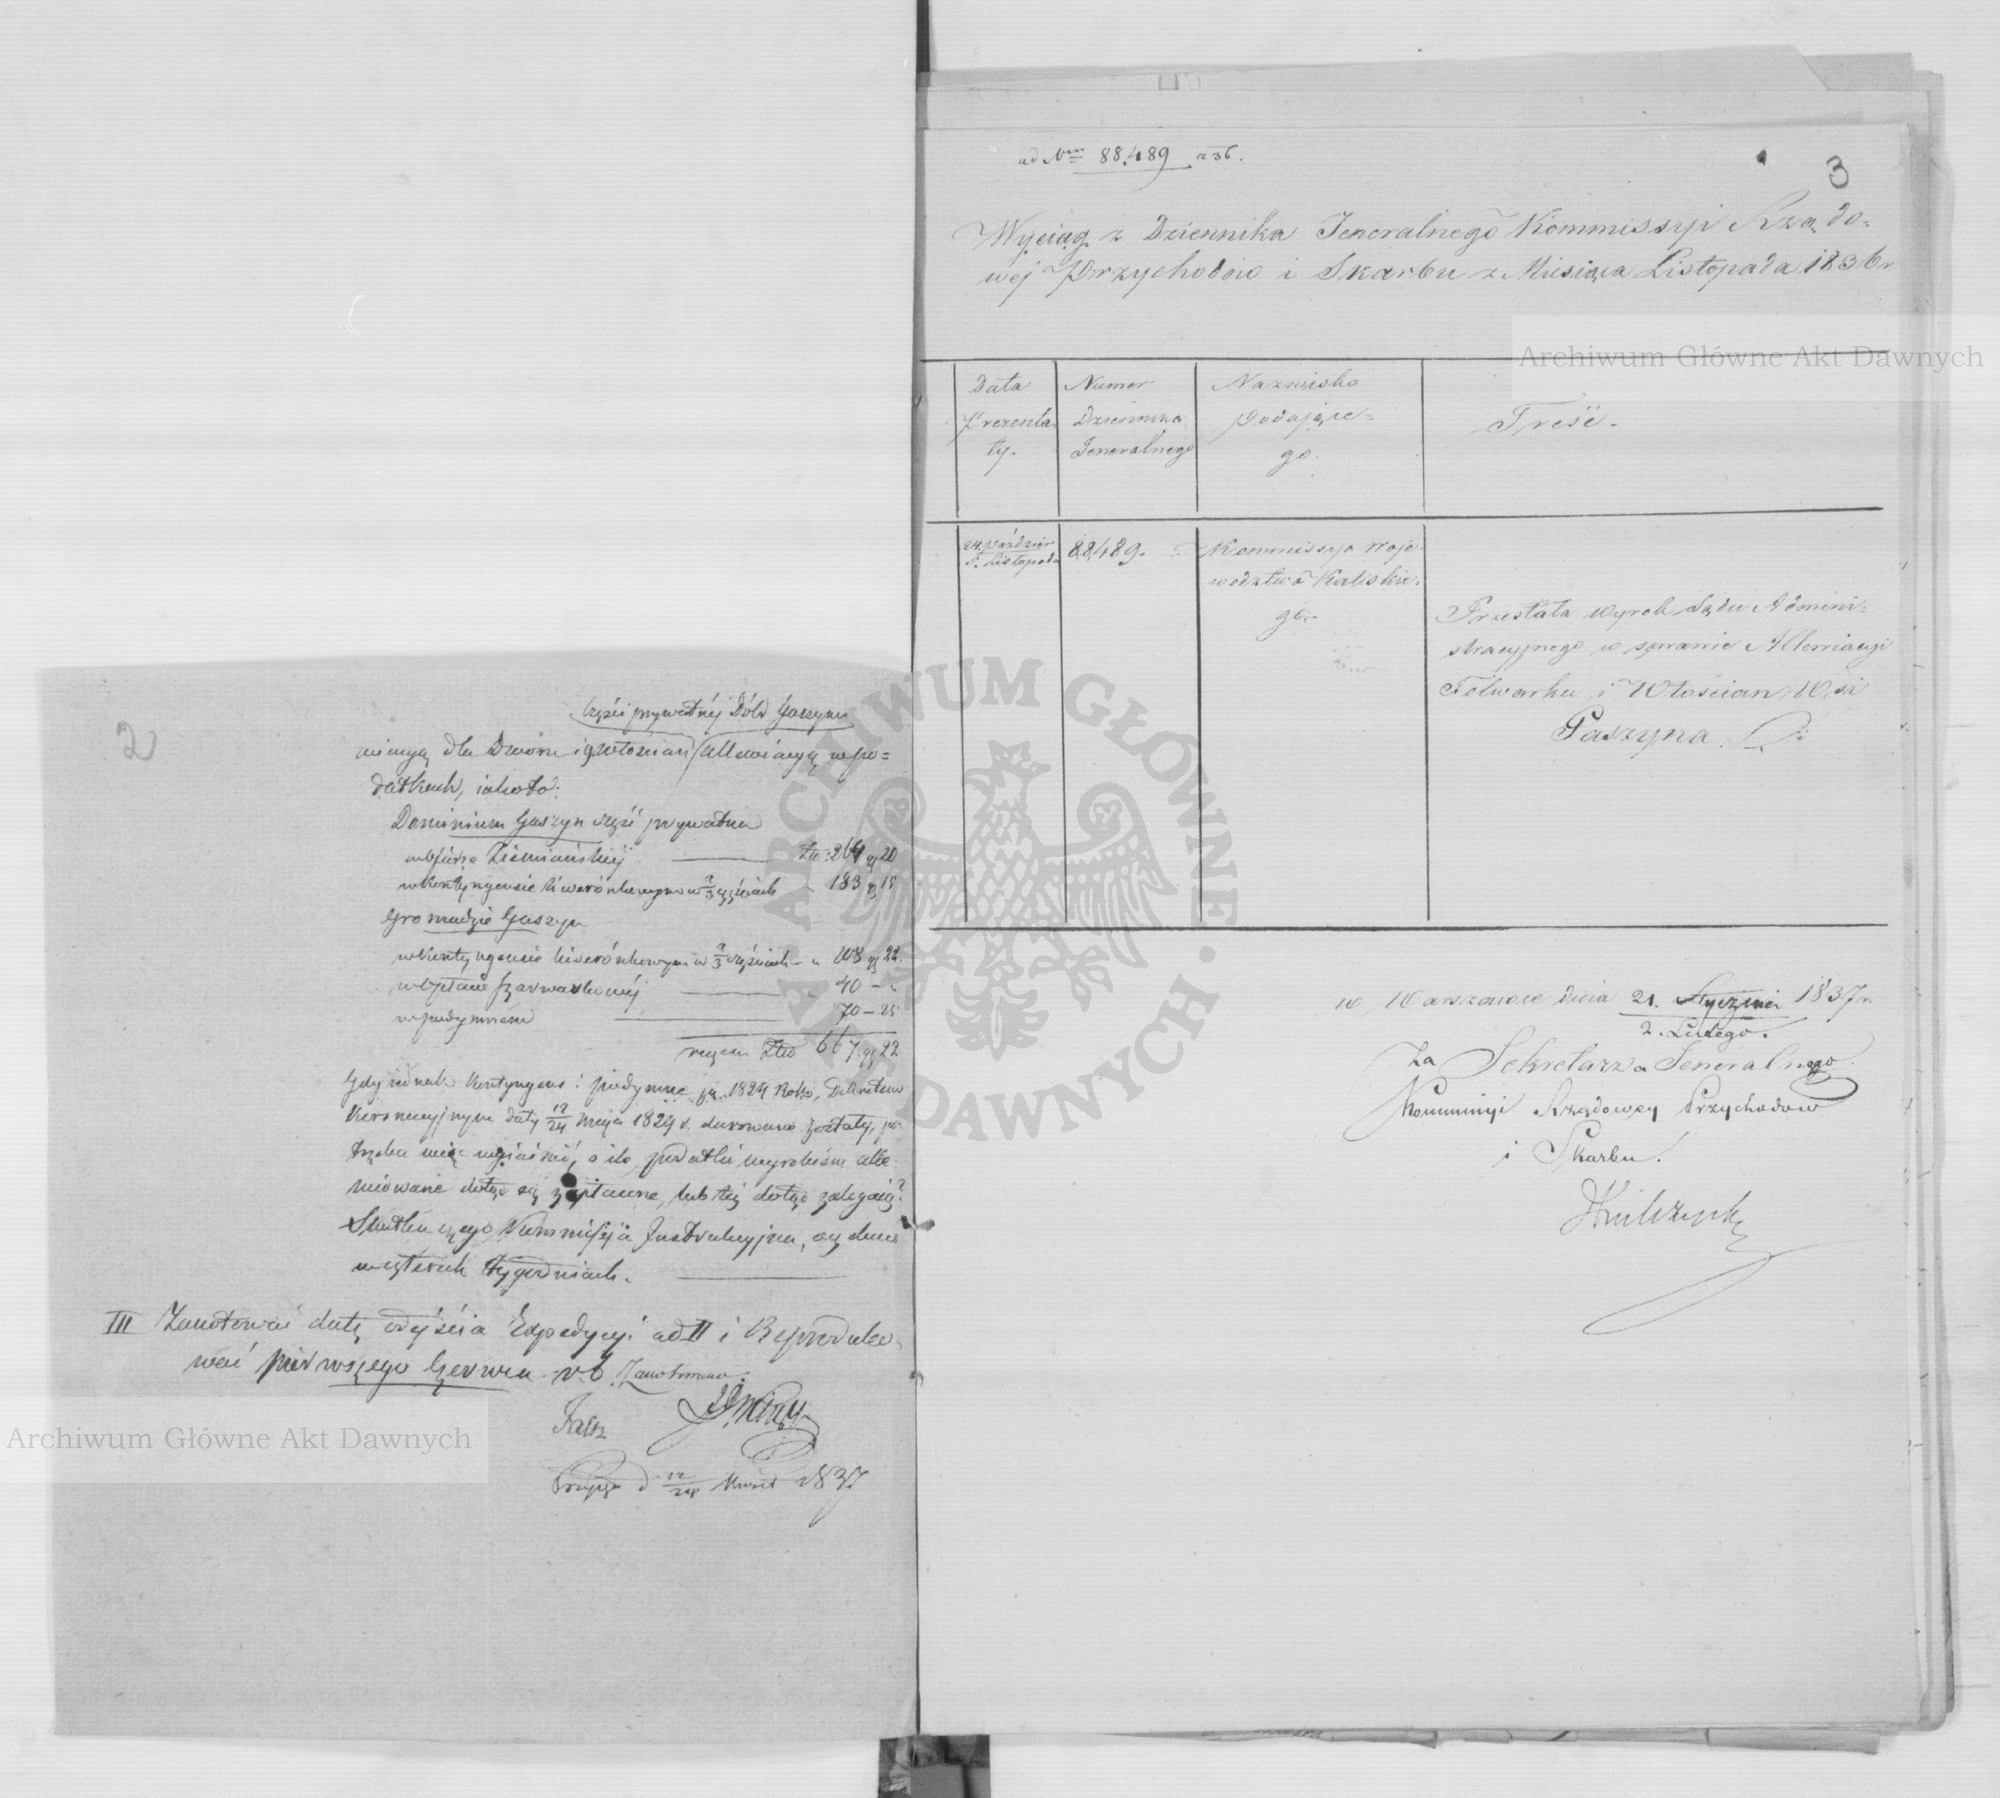 2
Części prywatnéj Dóbr Gaszyna
dla Dworu i Włościan allewiacyą w po=
datkach, iakoto:
Dominium Gaszyn część prywatna
w ofiarze Ziemiańskiej Zł: 264 gr 20
w kontyngensie liwerónkowym w 2/3 częściach " 183 gr 15
Gromadzie Gaszyn
w kontyngensie liwerónkowym w 2/3 częściach " 108 gr 22
w opłacie szarwarkowéj " 40 – "
w podymnem 70 – 25
razem Złp 667 gr 22
Gdy iednak kontyngens i podymne za 1829 Roku, Dekretem
Koronacyjnym daty 12/24 Maja 1829 r. darowane zostały, po-
trzeba więc wyiaśnić, o ile podatki wyrokiem alle-
wiowane dotąd są zapłacone, lub też dotąd zalegaią?
Skutku czego Kommissyja Instrukcyjna, oczekuie
w czterech tygodniach.
III Zanotować datę odejścia Expedycyi ad II i Reproduko-
wać pierwszego Czerwca r. b. Zanotowano.
d 12/24 1837
Archiwum Główne Akt Dawnych
3
ad Nrm 88,489 z 36.
Wyciąg z Dziennika Jeneralnego Kommissyi Rządo=
wej Przychodów i Skarbu z Miesiąca Listopada 1836 r
Archiwum Główne Akt Dawnych
Data Prezenta=ty.
Numer Dziennika Jeneralnego
Nazwisko Podające=go.
Treść.
24. Paździer / 5. Listopada
88,489.
Kommissya Woje
wodztwa Kaliskie=
go.
Przesłała wyrok Sądu Admini=
stracyjnego w sprawie Allewiacyi
Folwarku i Włościan Wsi
Gaszyna.
w Warszawie dnia 21. Stycznia 1837 r.
2. Lutego.
Za Sekretarza Jeneralnego
Kommissyi Rządowey Przychodow
i Skarbu.
ARCHIWUM GŁÓWNE AKT DAWNYCH